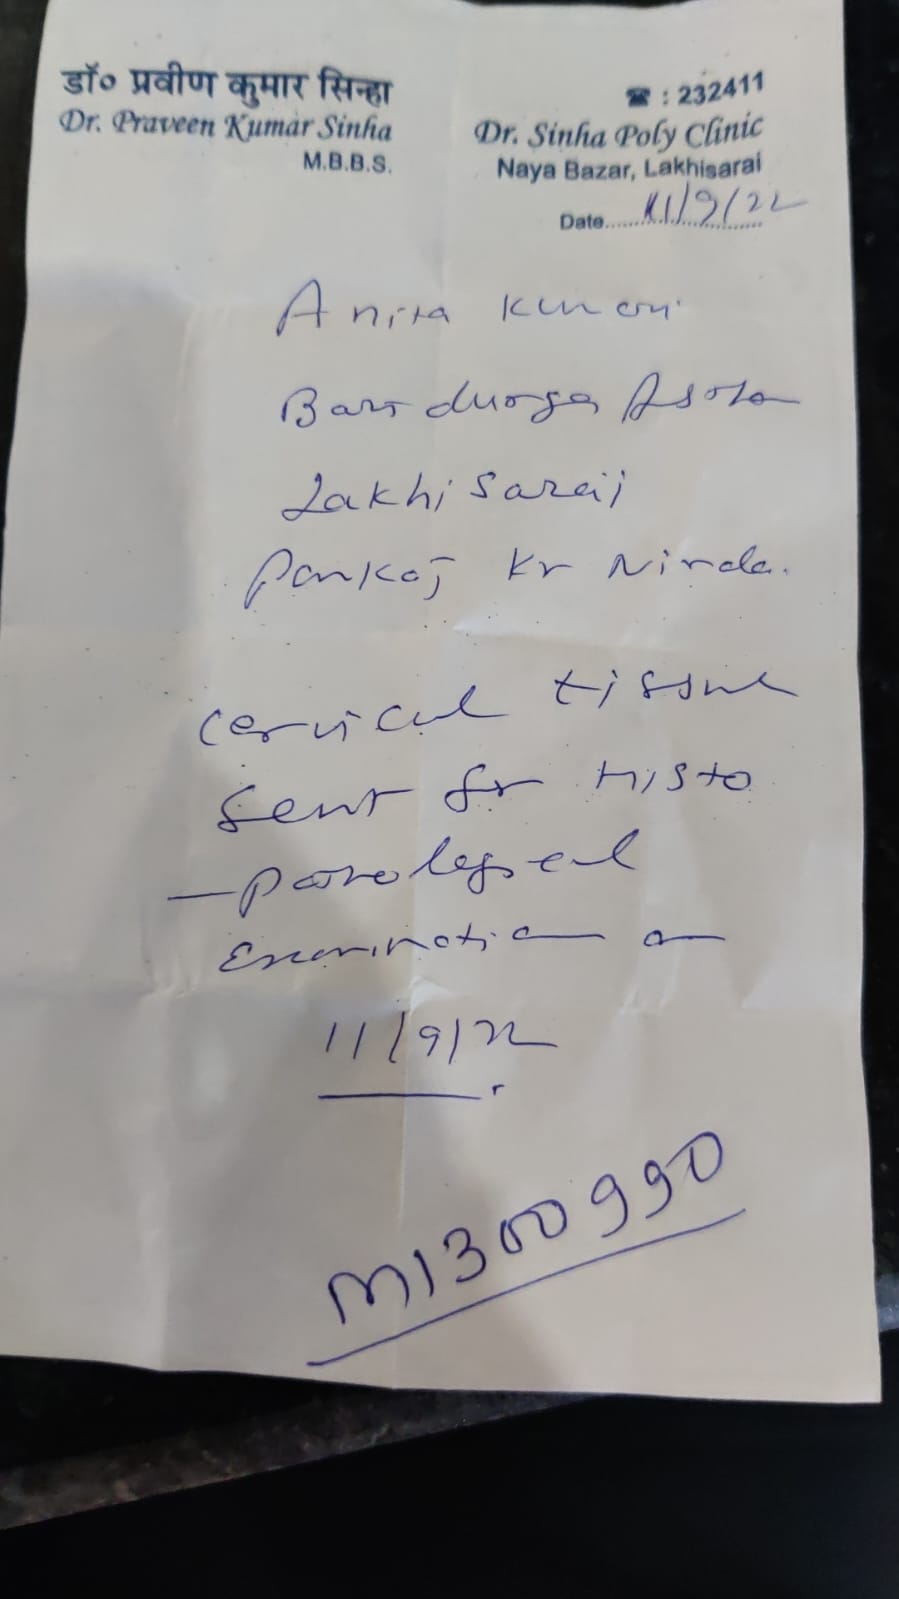 डॉ० प्रवीण कुमार सिन्हा
Dr. Praveen Kumar Sinha
M.B.B.S.
☎ : 232411
Dr. Sinha Poly Clinic
Naya Bazar, Lakhisarai
Date......11/9/22
Anita Kumari
Bari durga Asthan
Lakhi Sarai
Pankaj Kr
Cervical tissue
Sent for Histo
- pathological
Examination on
11/9/22
M1300990